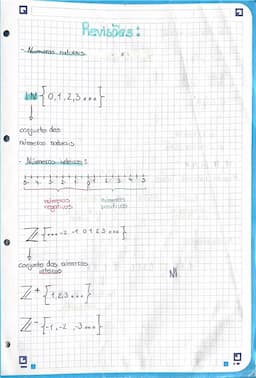 Revisões:
- Números naturais
IN {0,1,2,3...}
conjunto dos
números naturais
- Números inteiros:
5 4 3 2 1 0 1 2 3 4 5
números
negativos
números
positivos
Z {...-2 -1 0 1 2 3...}
conjunto dos números
inteiros
IN
Z⁺ {1,2,3...}
Z⁻ {-1,-2,-3...}